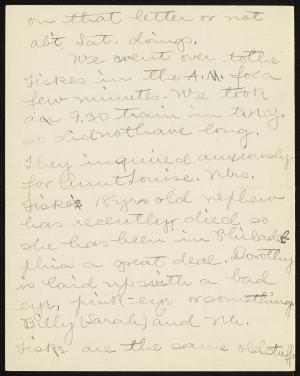 on that letter or not
abt. Sat. doings.
We went over to the
Fiskes in the A.M. for a
few minutes - We took
a 9.30 train in to N.Y.
so did not have long.
They inquired anxiously
for Aunt Louise. Mrs.
Fiske's 18 yr old nephew
has recently died so
she has been in Philadel
phia a great deal. Dorothy
is laid up with a bad
eye, pink-eye or something
Billy (Sarah) and Mr.
Fiske are the same old stuff